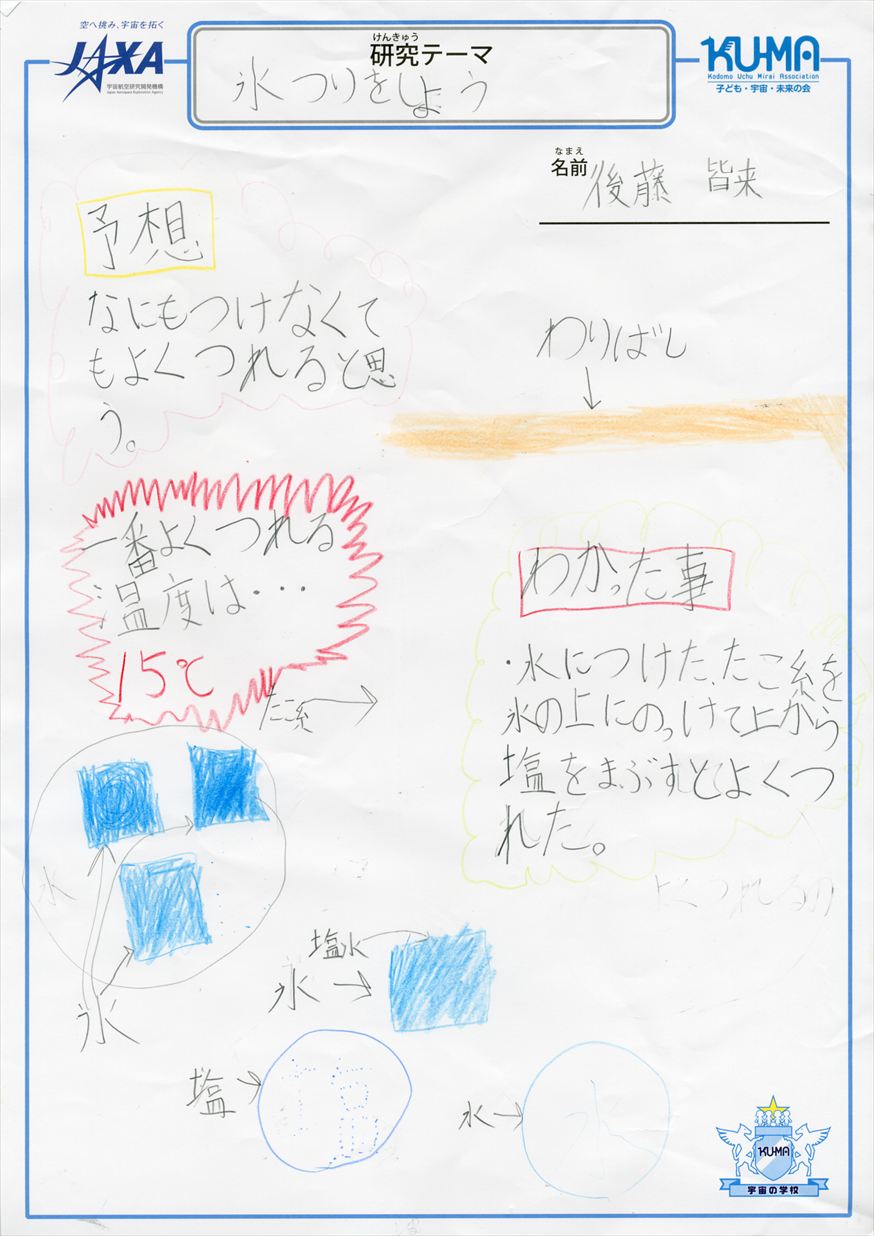 空へ挑み、宇宙を拓く
JAXA
宇宙航空研究開発機構
Japan Aerospace Exploration Agency
けんきゅう
研究テーマ
氷つりをしよう
KU-MA
Kodomo Uchu Mirai Association
子ども・宇宙・未来の会
なまえ
名前 後藤 皆来
予想
なにもつけなくて
もよくつれると思
う。
わりばし
一番よくつれる
温度は・・・
15℃
わかった事
・水につけた、たこ糸を
氷の上にのっけて上から
塩をまぶすとよくつ
れた。
たこ糸
水
氷
よくつれるの
塩水
氷
塩
水
水
KU-MA
宇宙の学校